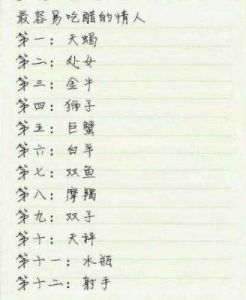 最容易吃醋的情人
第一：天蝎
第二：处女
第三：金牛
第四：狮子
第五：巨蟹
第六：白羊
第七：双鱼
第八：摩羯
第九：双子
第十：天秤
第十一：水瓶
第十二：射手